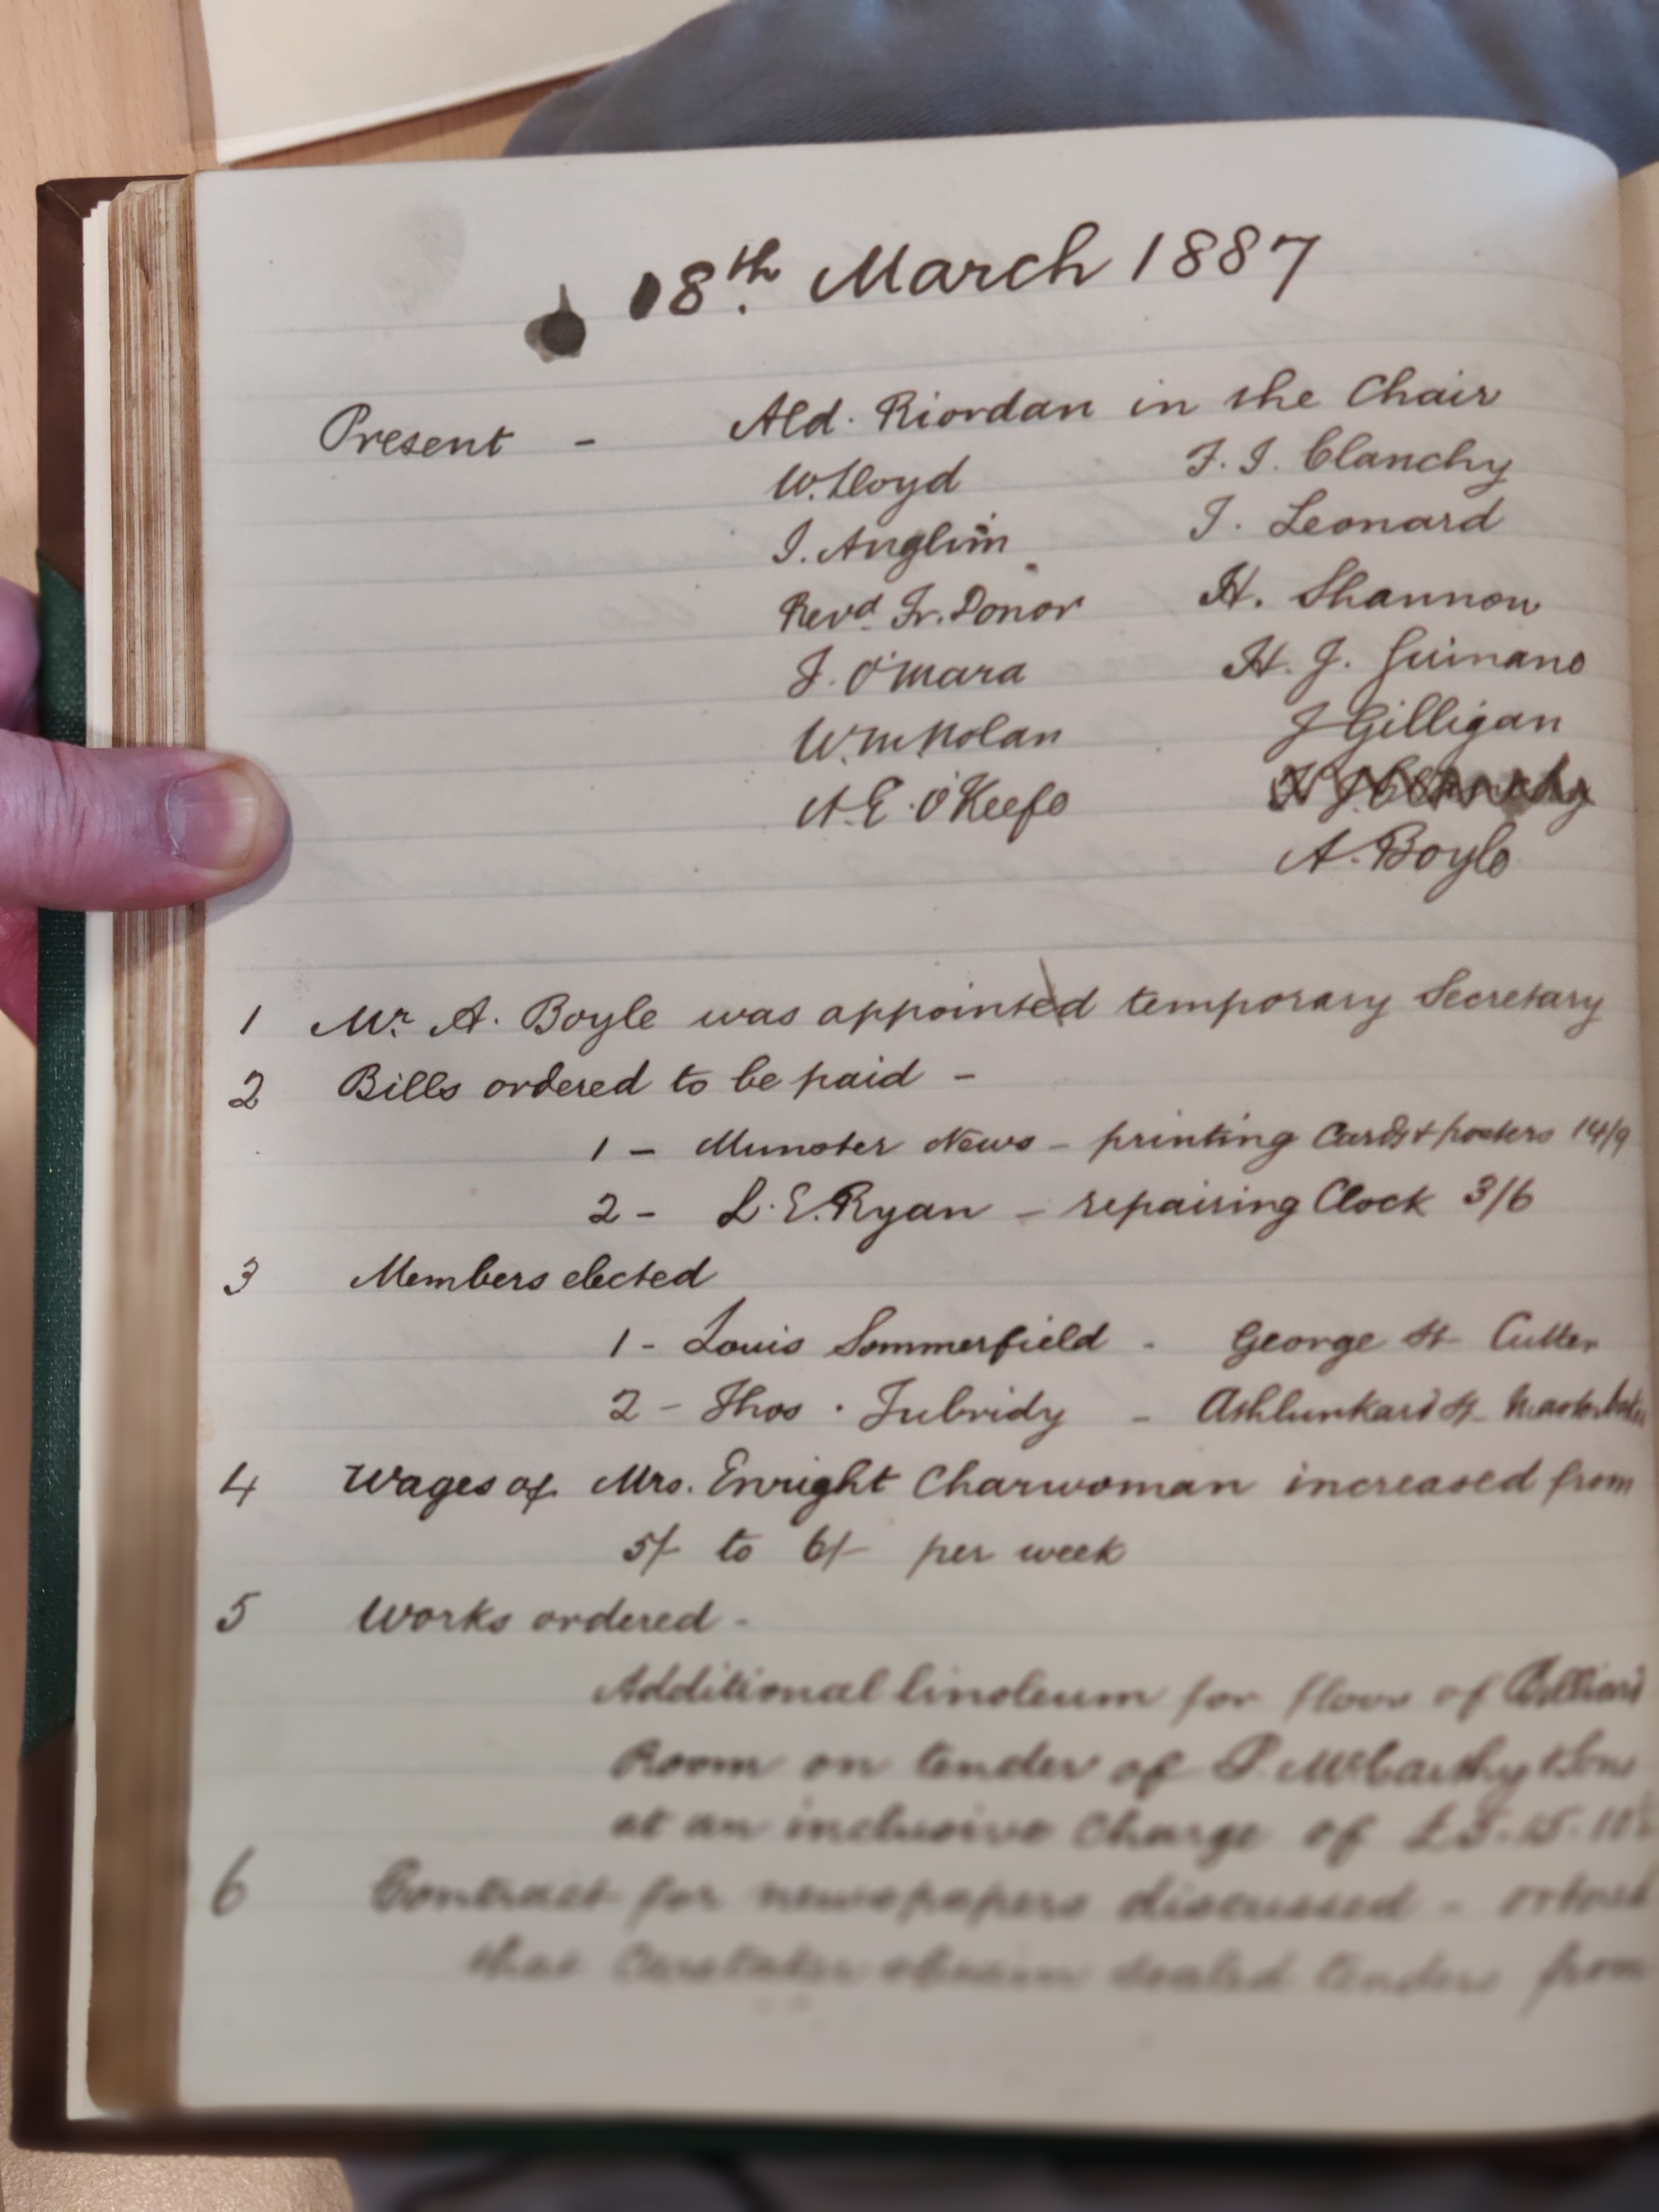 18th March 1887
Present - Ald. Riordan in the Chair
W. Lloyd F. J. Clanchy
J. Anglim J. Leonard
Revd. Fr. Donor H. Shannon
J. O'Mara H. J. Guinane
Wm Nolan J Gilligan
A. E. O'Keefe
A. Boyle
1 Mr. A. Boyle was appointed temporary Secretary
2 Bills ordered to be paid -
1 - Munster News - printing Cards & posters 14/9
2 - L. E. Ryan - repairing Clock 3/6
3 Members elected
1 - Louis Sommerfield - George St Cutter
2 - Thos. Tubridy -
4 Wages of Mrs. Enright Charwoman increased from
5/- to 6/- per week
5 Works ordered -
Additional linoleum for floor of Billiard
Room on tender of P. McCarthy & Sons
at an inclusive Charge of
6 Contract for newspapers discussed -
that Caretaker obtain sealed tenders from